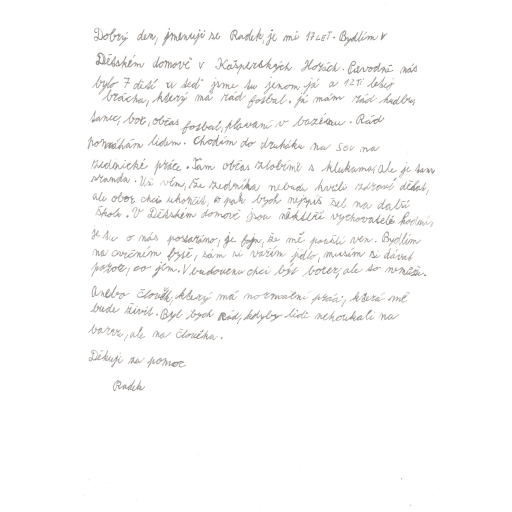 Dobrý den, jmenuji se Radek, je mi 17 LET. Bydlím v
Dětském domově v Kašperských Horách. Původně nás
bylo 7 dětí a teď jsme tu jenom já a 12ti letej
brácha, který má rád fotbal. Já mám rád hudbu,
tanec, box, občas fotbal, plavání v bazénu. Rád
pomáhám lidem. Chodím do druháku na SOU na
zednické práce. Tam občas zlobíme s klukama, ale je tam
sranda. Už vím, že zedníka nebudu kvůli zdraví dělat,
ale obor chci ukončit, a pak bych nejspíš šel na další
školu. V Dětském domově jsou někteří vychovatelé hodní,
je tu o nás postaráno, je fajn, že mě pouští ven. Bydlím
na cvičném bytě, sám si vařím jídlo, musím si dávat
pozor, co jím. V budoucnu chci být boxer, ale to nemůžu.
Anebo člověk, který má normální práci, která mě
bude živit. Byl bych Rád, kdyby lidi nekoukali na
barvu, ale na člověka.
Děkuji za pomoc
Radek